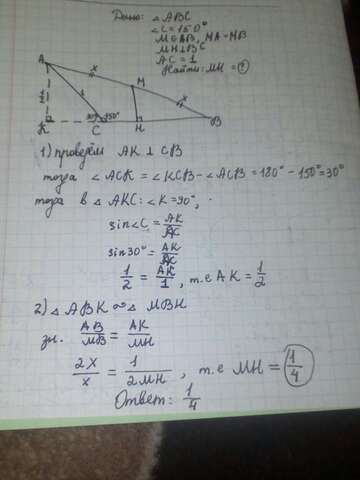 Дано: △ABC
∠C=150°
M∈AB, MA=MB
MH⊥BC
AC=1
Найти: MH=?
A
x
M
1/2
1
x
K
30°
150°
C
H
B
1) проведём AK ⊥ CB
тогда ∠ACK = ∠KCB-∠ACB=180°-150°=30°
тогда в △AKC: ∠K=90°,
sin∠C = AK/AC
sin30° = AK/AC
1/2 = AK/1, т.е AK = 1/2
2) △ABK ∞ △MBH
зн. AB/MB = AK/MH
2x/x = 1/2MH, т.е MH = 1/4
Ответ: 1/4